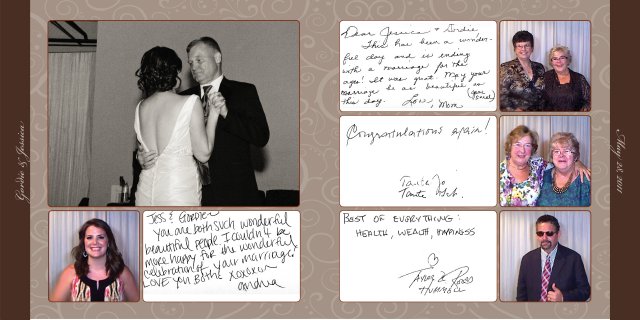 Gordie & Jessica
Jess & Gordie
You are both such wonderful
beautiful people. I couldn't be
more happy for the wonderful
celebration of your marriage.
LOVE you Both xoxoxo
Andrea
Dear Jessica & Gordie
This has been a wonder-
ful day and is ending
with a marriage for the
ages! It was great. May your
marriage be as beautiful as
this day.
Love, Mom
Congratulations again!
Tante Jo
Tante
BEST OF EVERYTHING:
HEALTH, WEALTH, HAPPINESS
May 28, 2011